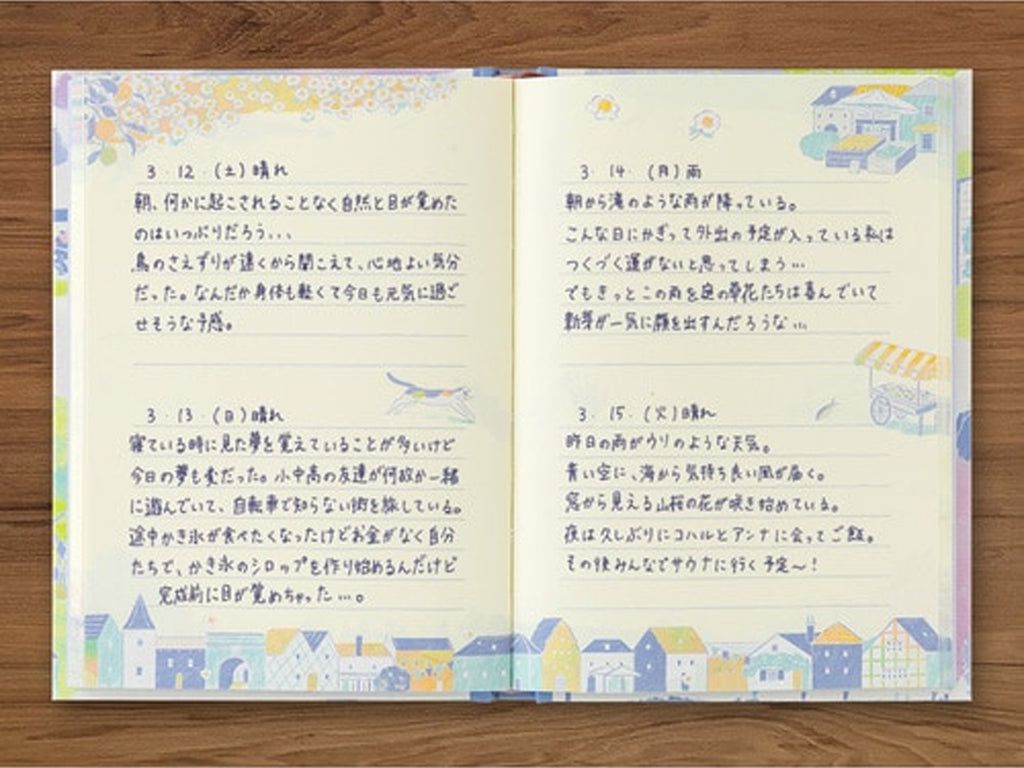 3・12・(土)晴れ
朝、何かに起こされることなく自然と目が覚めた
のはいつぶりだろう...
鳥のさえずりが遠くから聞こえて、心地よい気分
だった。なんだか身体も軽くて今日も元気に過ご
せそうな予感。
3・13・(日)晴れ
寝ている時に見た夢を覚えていることが多いけど
今日の夢も変だった。小中高の友達が何故か一緒
に遊んでいて、自転車で知らない街を旅している。
途中かき氷が食べたくなったけどお金がなく自分
たちで、かき氷のシロップを作り始めるんだけど
完成前に目が覚めちゃった…。
3・14・(月)雨
朝から滝のような雨が降っている。
こんな日にかぎって外出の予定が入っている私は
つくづく運がないと思ってしまう…
でもきっとこの雨を庭の草花たちは喜んでいて
新芽が一気に顔を出すんだろうな…
3・15・(火)晴れ
昨日の雨がウソのような天気。
青い空に、海から気持ち良い風が届く。
窓から見える山桜の花が咲き始めている。
夜は久しぶりにコハルとアンナに会ってご飯。
その後みんなでサウナに行く予定〜!